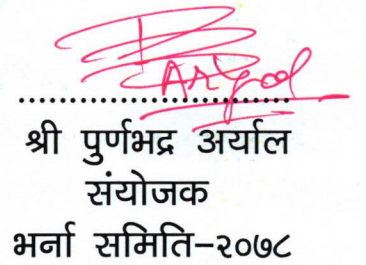 श्री पुर्णभद्र अर्याल
संयोजक
भर्ना समिति–२०७८